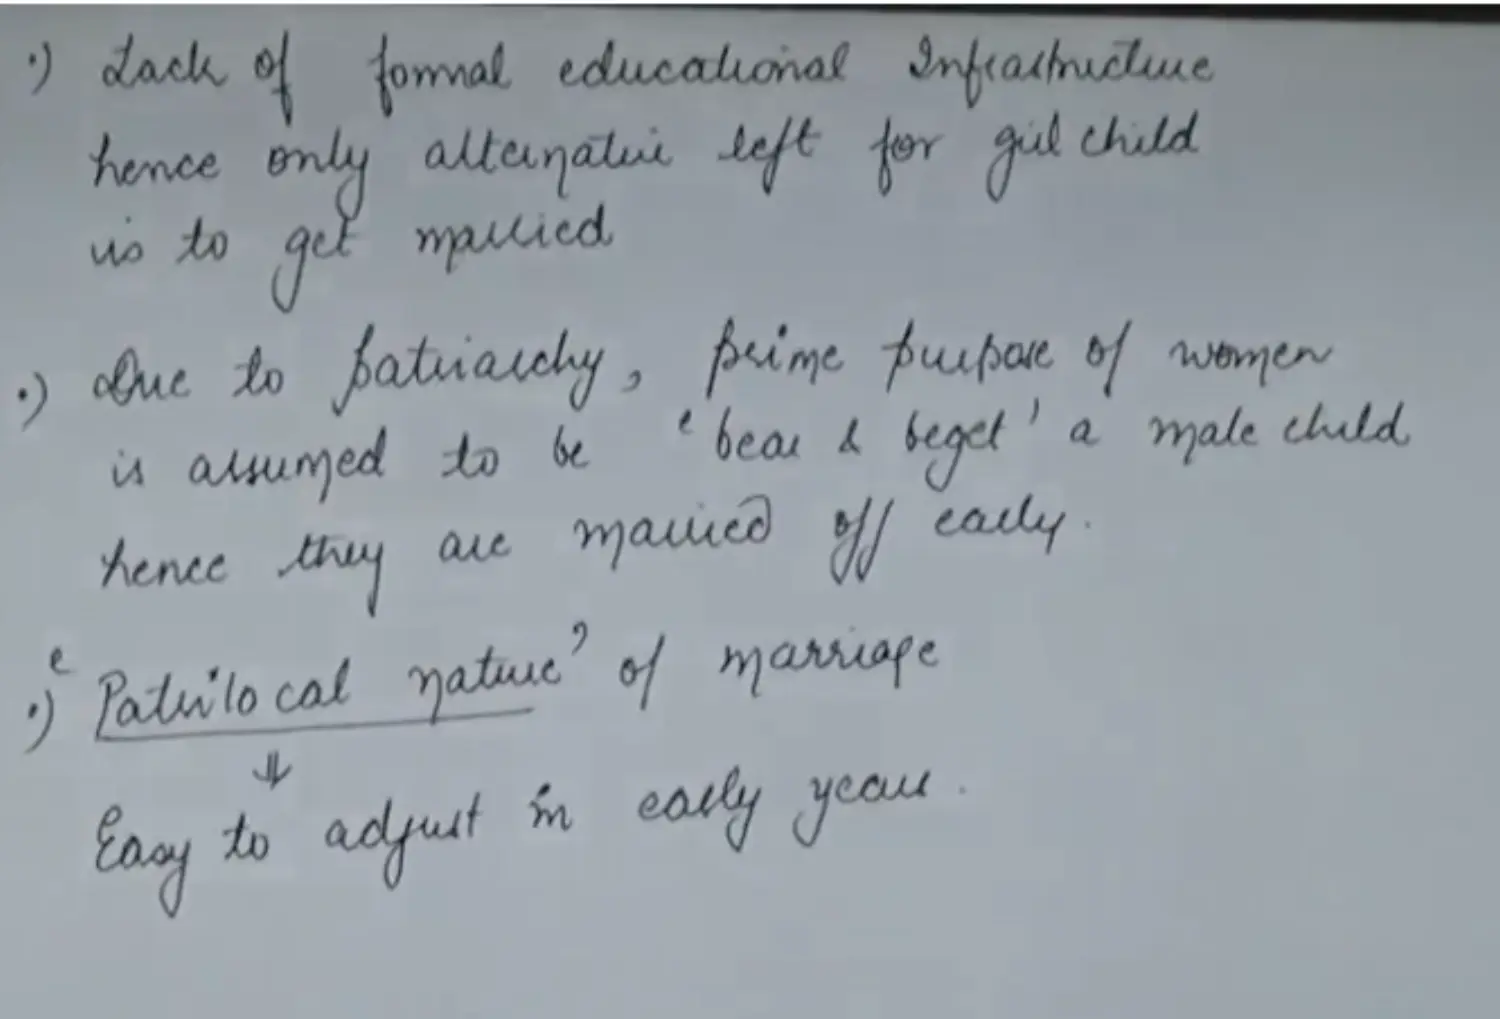 •) Lack of formal educational Infrastructure
hence only alternative left for girl child
is to get married
•) Due to patriarchy, prime purpose of women
is assumed to be 'bear & beget' a male child
hence they are married off early.
•) 'Patrilocal nature' of marriage
⇓
Easy to adjust in early years.